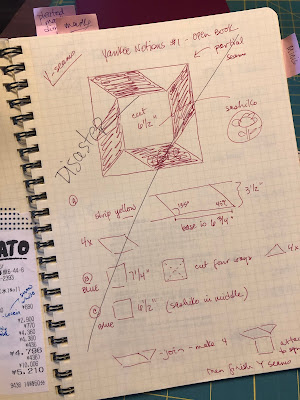 Yankee Notions #1 - Open Book
Y-seams
partial
seam
cut
6 1/2"
sashiko
Disaster
A
strip yellow
135°
45°
3 1/2"
base is 6 3/4"
4x
B
blue
7 1/4"
cut four ways
4x
C
blue
6 1/2"
(sashiko in middle)
-join - make 4
attach
to sq.
then finish Y seams
ATO
¥4,796
¥10,006
¥5,210